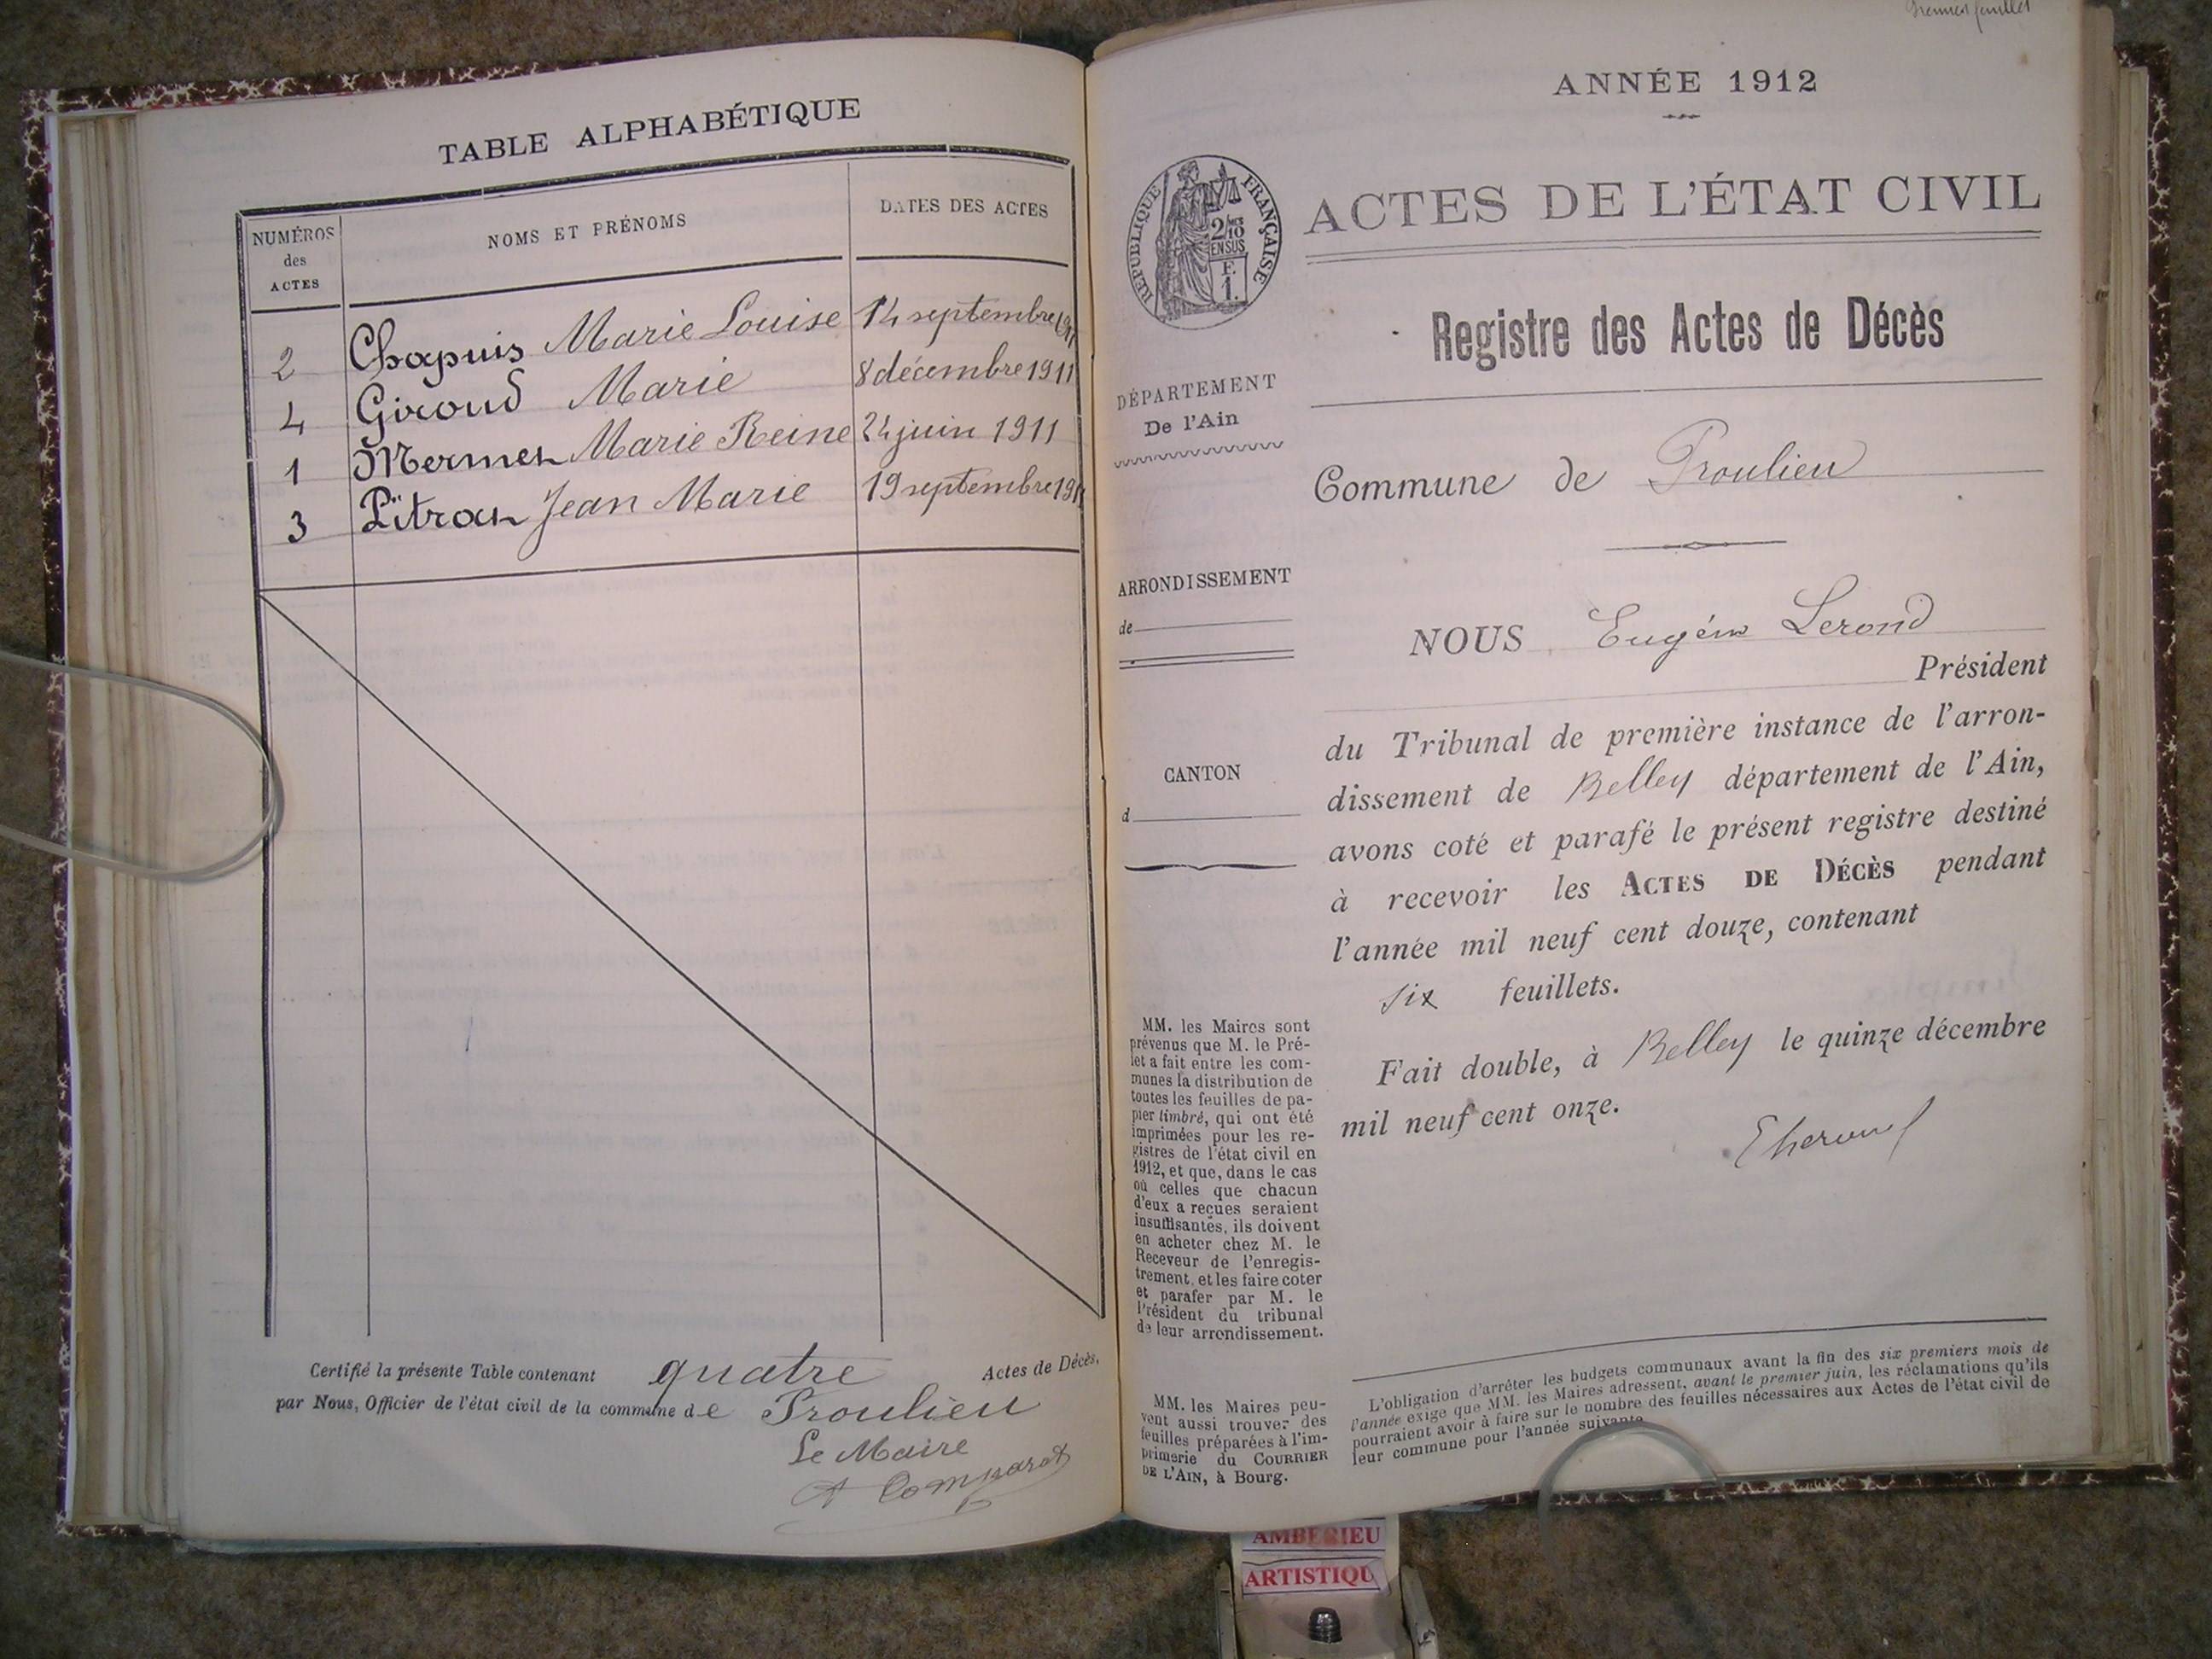 TABLE ALPHABÉTIQUE
NUMÉROS
des
ACTES
NOMS ET PRÉNOMS
DATES DES ACTES
2 Chapuis Marie Louise 14 septembre 1911
4 Giroud Marie 8 décembre 1911
1 Mermet Marie Reine 24 juin 1911
3 Pitrat Jean Marie 19 septembre 1911
Certifié la présente Table contenant quatre Actes de Décès,
par Nous, Officier de l'état civil de la commune de Proulieu
Le Maire
A Comparat
Premier feuillet
ANNÉE 1912
RÉPUBLIQUE FRANÇAISE
2/10
EN SUS
F.
1.
ACTES DE L'ÉTAT CIVIL
Registre des Actes de Décès
DÉPARTEMENT
De l'Ain
Commune de Proulieu
ARRONDISSEMENT
de
NOUS Eugène Lerond
Président
du Tribunal de première instance de l'arron-
CANTON
d
dissement de Belley département de l'Ain,
avons coté et parafé le présent registre destiné
à recevoir les ACTES DE DÉCÈS pendant
l'année mil neuf cent douze, contenant
six feuillets.
Fait double, à Belley le quinze décembre
mil neuf cent onze.
MM. les Maires sont
prévenus que M. le Pré-
fet a fait entre les com-
munes la distribution de
toutes les feuilles de pa-
pier timbré, qui ont été
imprimées pour les re-
gistres de l'état civil en
1912, et que, dans le cas
où celles que chacun
d'eux a reçues seraient
insuffisantes, ils doivent
en acheter chez M. le
Receveur de l'enregis-
trement, et les faire coter
et parafer par M. le
Président du tribunal
de leur arrondissement.
MM. les Maires peu-
vent aussi trouver des
feuilles préparées à l'im-
primerie du COURRIER
DE L'AIN, à Bourg.
L'obligation d'arrêter les budgets communaux avant la fin des six premiers mois de
l'année exige que MM. les Maires adressent, avant le premier juin, les réclamations qu'ils
pourraient avoir à faire sur le nombre des feuilles nécessaires aux Actes de l'état civil de
leur commune pour l'année suivante.
AMBERIEU
ARTISTIQU